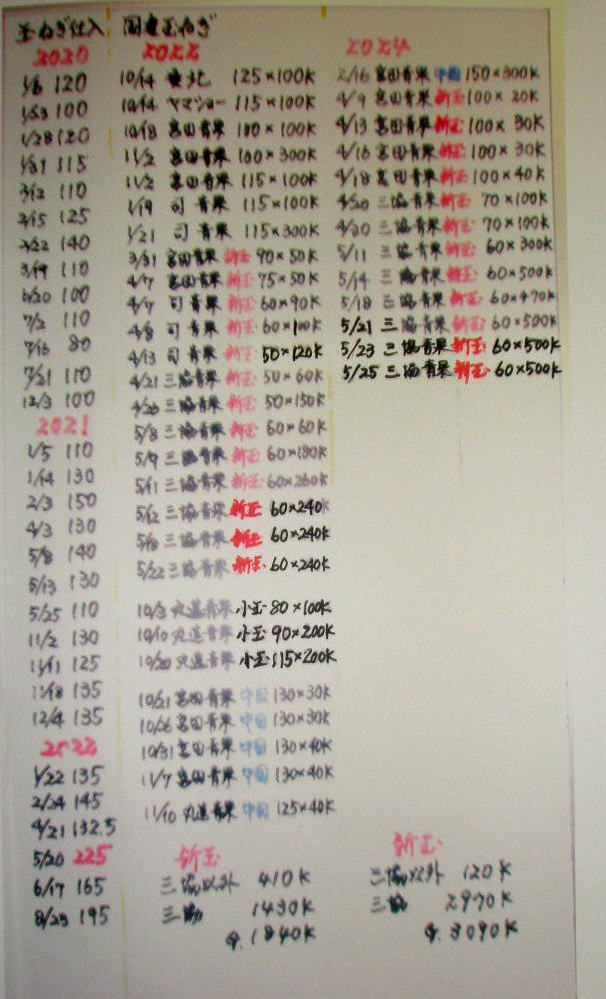 玉ねぎ仕入
2020
1/6 120
1/23 100
1/28 120
1/31 115
3/12 110
2/15 125
2/22 140
3/19 110
6/20 100
7/2 110
7/16 80
7/21 110
12/3 100
2021
1/5 110
1/14 130
2/3 150
4/3 130
5/8 140
5/13 130
5/25 110
11/2 130
11/11 125
11/18 135
12/4 135
2022
1/22 135
2/24 145
4/21 132.5
5/20 225
6/17 165
8/23 195
国産玉ねぎ
2022
10/14 北 125×100K
10/14 ヤマショー 115×100K
10/18 富田青果 100×100K
11/2 富田青果 100×300K
11/2 富田青果 115×100K
1/19 司青果 115×100K
1/21 司青果 115×300K
3/31 富田青果 新玉 90×50K
4/7 富田青果 新玉 75×50K
4/7 司青果 新玉 60×90K
4/8 司青果 新玉 60×100K
4/13 司青果 新玉 50×120K
4/21 三協青果 新玉 50×60K
4/26 三協青果 新玉 50×150K
5/8 三協青果 新玉 60×60K
5/9 三協青果 新玉 60×180K
5/11 三協青果 新玉 60×260K
5/12 三協青果 新玉 60×240K
5/18 三協青果 新玉 60×240K
5/22 三協青果 新玉 60×240K
10/3 丸進青果 小玉 80×100K
10/10 丸進青果 小玉 90×200K
10/20 丸進青果 小玉 115×200K
10/21 富田青果 中国 130×30K
10/26 富田青果 中国 130×30K
10/31 富田青果 中国 130×40K
11/7 富田青果 中国 130×40K
11/10 丸進青果 中国 125×40K
新玉
三協以外 410K
三協 1430K
1840K
2024
2/16 富田青果 中国 150×300K
4/9 富田青果 新玉 100×20K
4/13 富田青果 新玉 100×30K
4/16 富田青果 新玉 100×30K
4/18 富田青果 新玉 100×40K
4/20 三協青果 新玉 70×100K
4/30 三協青果 新玉 70×100K
5/11 三協青果 新玉 60×300K
5/14 三協青果 新玉 60×500K
5/18 三協青果 新玉 60×470K
5/21 三協青果 新玉 60×500K
5/23 三協青果 新玉 60×500K
5/25 三協青果 新玉 60×500K
新玉
三協以外 120K
三協 2970K
3090K